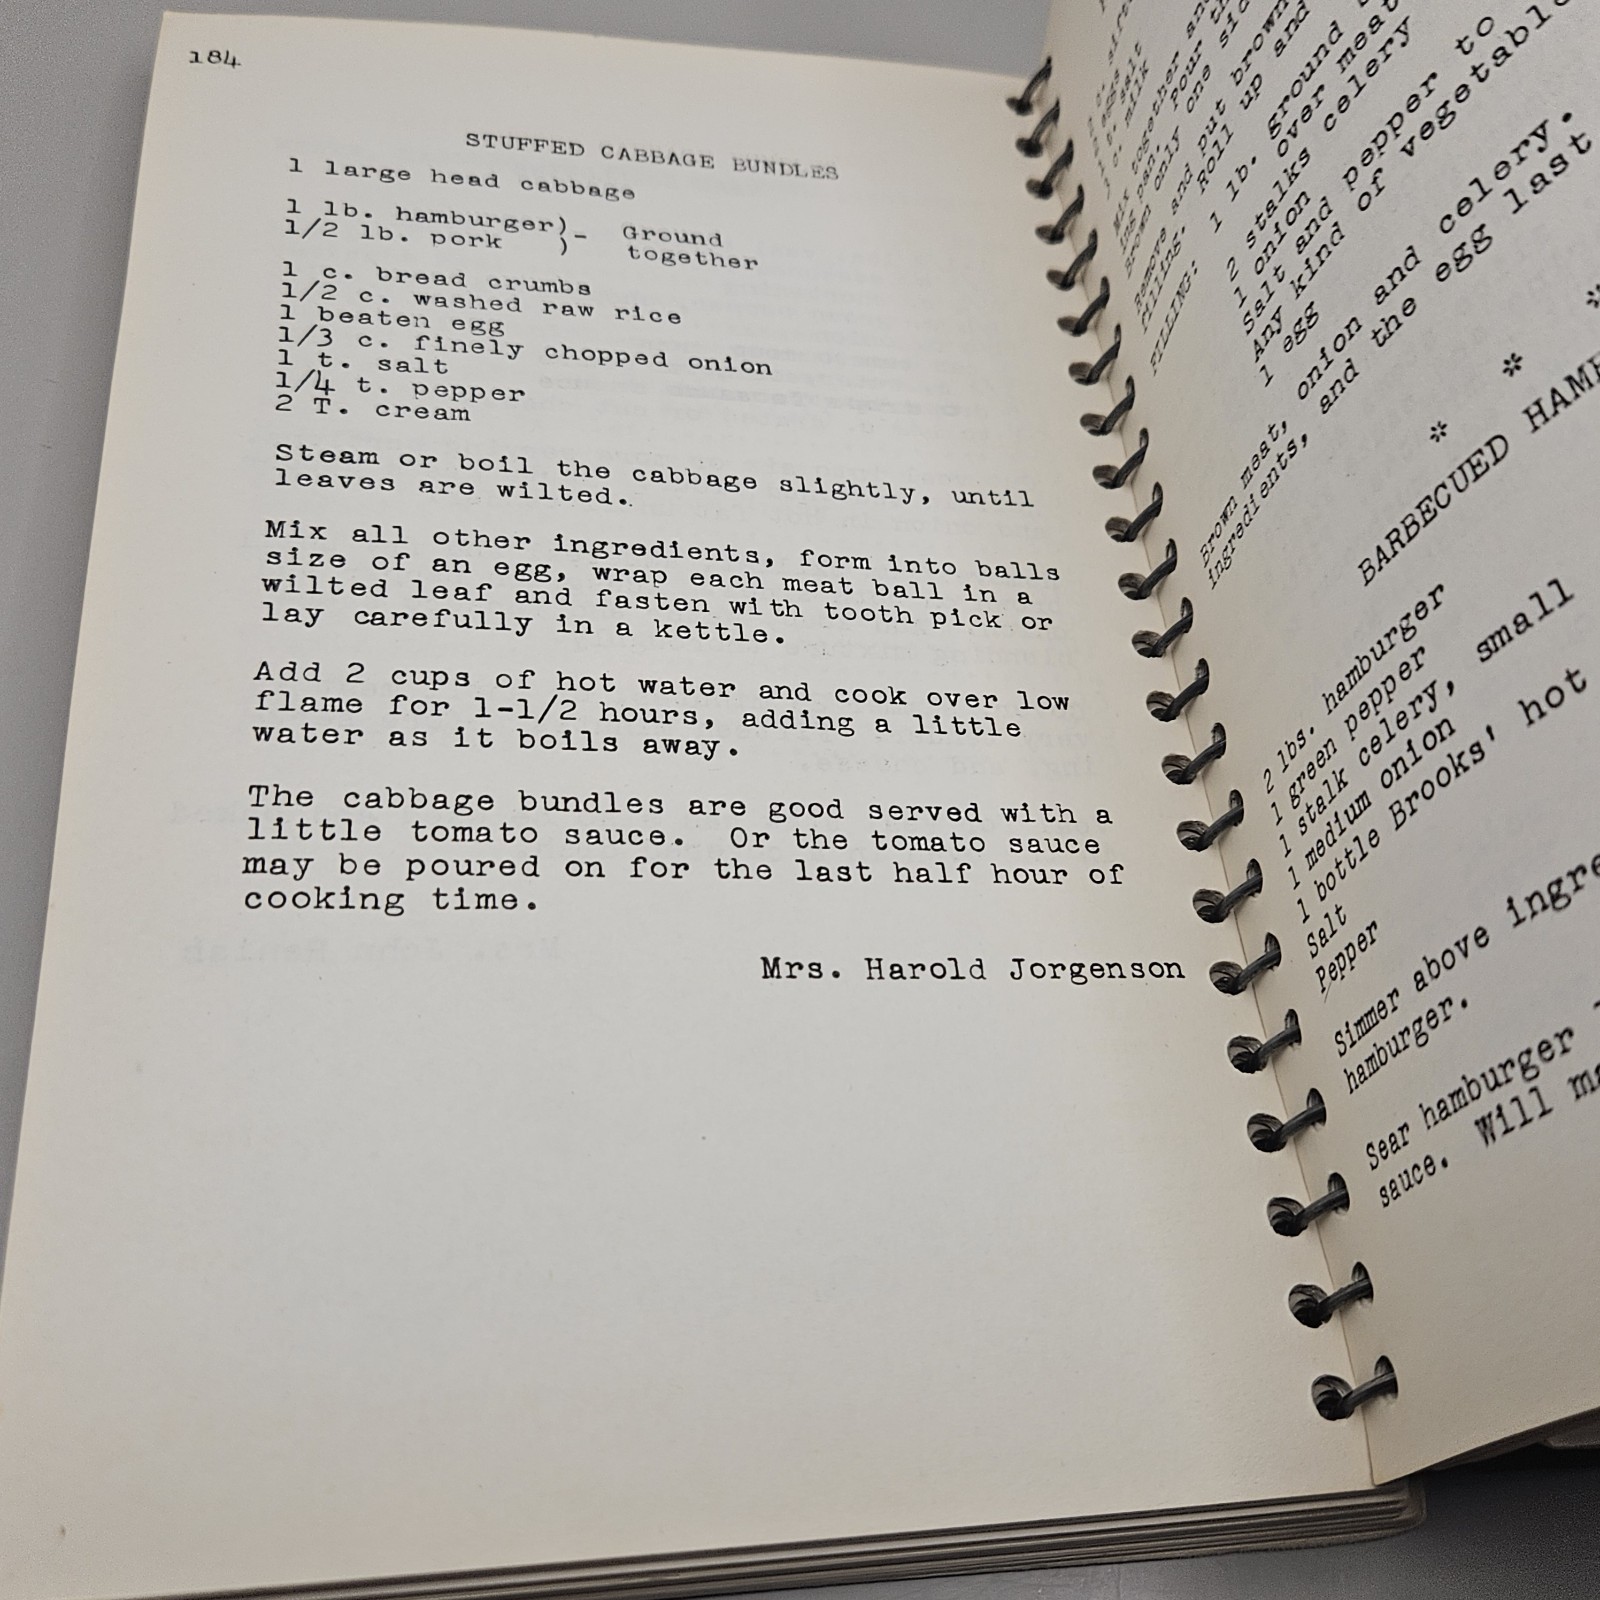 184
STUFFED CABBAGE BUNDLES
1 large head cabbage
1 lb. hamburger)- Ground
1/2 lb. pork ) together
1 c. bread crumbs
1/2 c. washed raw rice
1 beaten egg
1/3 c. finely chopped onion
1 t. salt
1/4 t. pepper
2 T. cream
Steam or boil the cabbage slightly, until
leaves are wilted.
Mix all other ingredients, form into balls
size of an egg, wrap each meat ball in a
wilted leaf and fasten with tooth pick or
lay carefully in a kettle.
Add 2 cups of hot water and cook over low
flame for 1-1/2 hours, adding a little
water as it boils away.
The cabbage bundles are good served with a
little tomato sauce. Or the tomato sauce
may be poured on for the last half hour of
cooking time.
Mrs. Harold Jorgenson
eggs
t. salt
c. milk
Mix together and
ing pan. Pour th
Brown only one sid
Remove and put brown
filling. Roll up and
FILLING: 1 lb. ground
over meat
2 stalks celery
1 onion
Salt and pepper to
Any kind of vegetable
1 egg
Brown meat, onion and celery.
ingredients, and the egg last
* * *
BARBECUED HAMB
2 lbs. hamburger
1 green pepper
1 stalk celery, small
1 medium onion
1 bottle Brooks' hot
Salt
Pepper
Simmer above ingre
hamburger.
Sear hamburger
sauce. Will ma